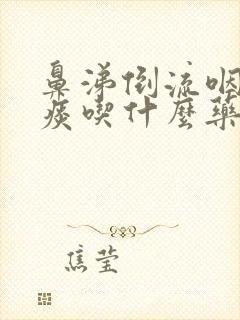 鼻涕倒流咽
痰喫什麼藥
焦莹